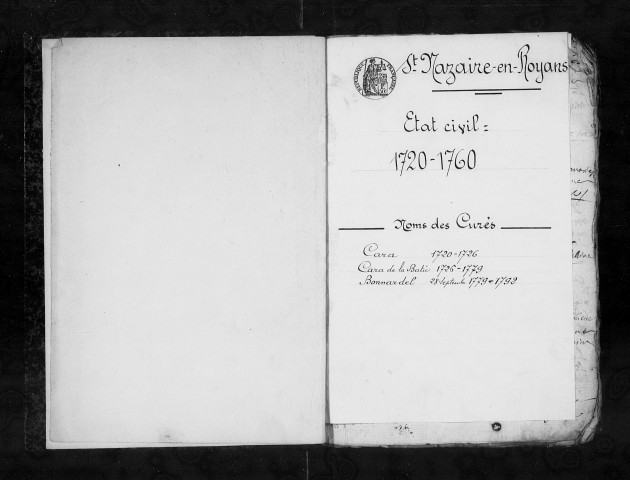 St Nazaire-en-Royans
RÉPUBLIQUE FRANÇAISE
Etat civil =
1720-1760
Noms des Curés
Cara 1720-1726
Cara de la Batie 1726-1779
Bonnardel 28 septembre 1779-1792